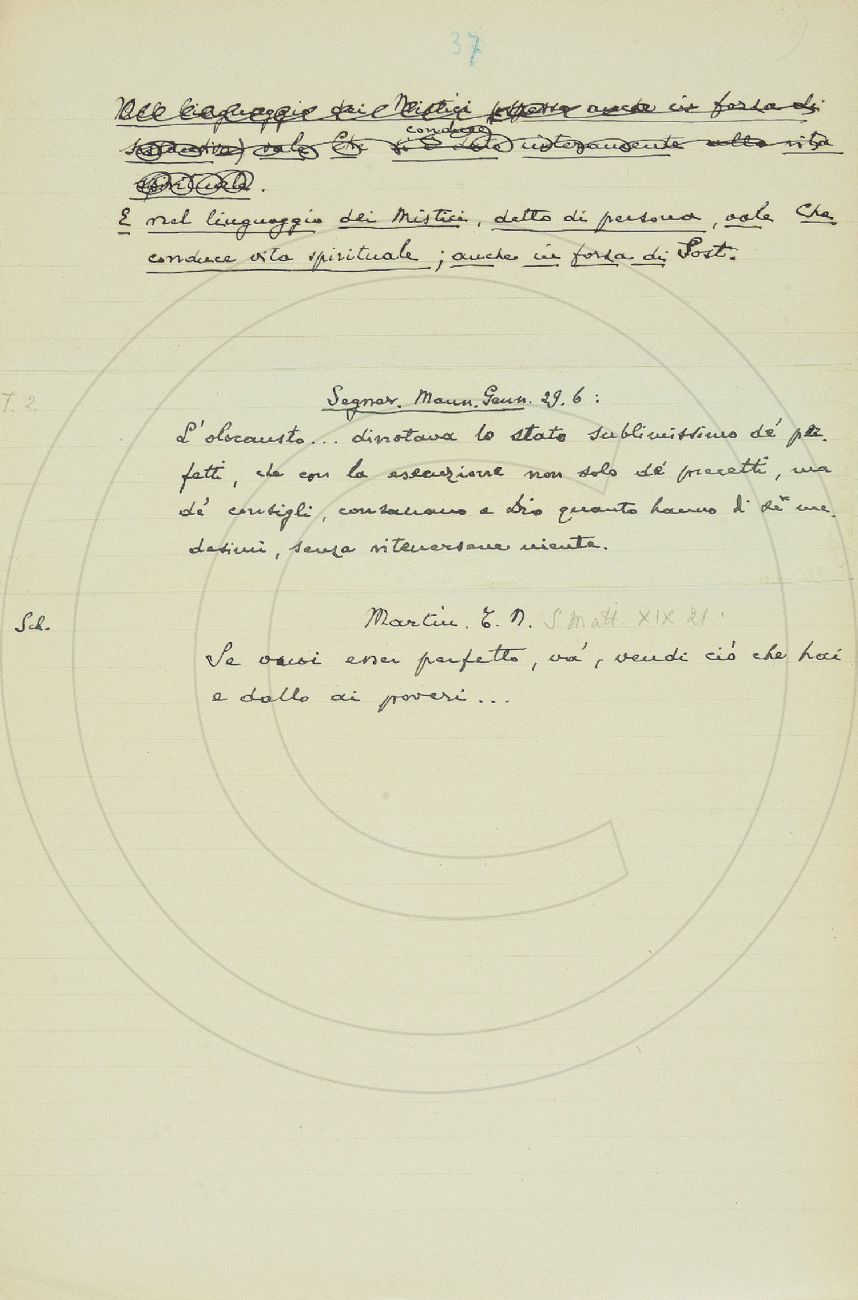 37
Nel linguaggio dei Mistici anche in forza di
conduce
sustantivo) vale Che si è dato interamente alla vita
spirituale.
E nel linguaggio dei Mistici, detto di persona, vale Che
conduce vita spirituale; anche in forza di Sost.
T. 2.
Segner. Mann. Genn. 29. 6:
L'olocausto... dinotava lo stato sublimissimo de' per-
fetti, che con la esecuzione non solo de' precetti, ma
de' consigli, consacrano a Dio quanto hanno di sè me-
desimi, senza ritenersene niente.
Sch.
Martin. T. N. S. Matt. XIX 21:
Se vuoi esser perfetto, va', vendi ciò che hai
e dallo ai poveri...